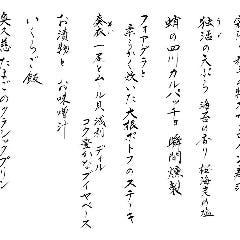 独活の天ぷら 海苔の香り 桜海老の塩
うど
蛸の四川カルパッチョ 瞬間燻製
フォアグラと
柔らかく炊いた大根ポトフのステーキ
奏衣 一子とムール貝 浅利 ディル
コク豊かなブイヤベース
お漬物と お味噌汁
いくらご飯
奥久慈たまごのクラシックプリン